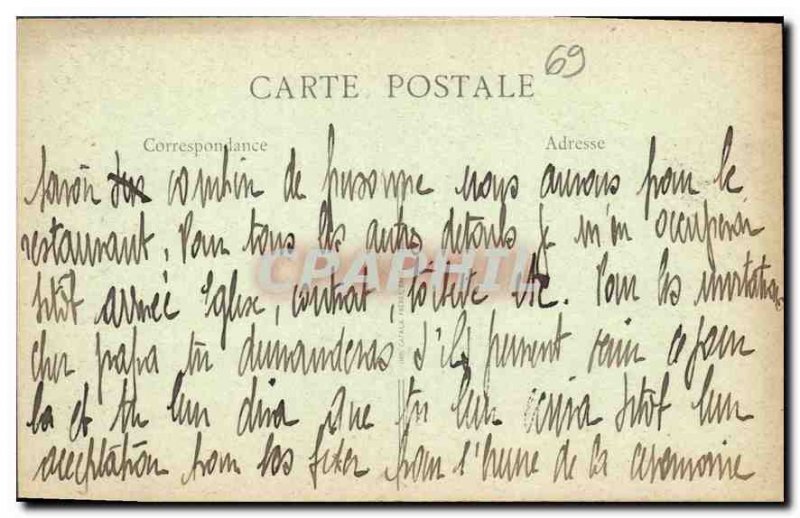 69
CARTE POSTALE
Correspondance
Adresse
savoir combien de personne nous aurons pour le
restaurant, Pour tous les autres details je m'en occuperai
sitôt arrivée Eglise, contrat, toilette etc. Pour les invitations
cher papa tu demanderas s'ils peuvent venir ce jour
la et tu leur dira que tu leur écrira sitôt leur
acceptation pour les fixer pour l'heure de la ceremonie
CPAPHIL